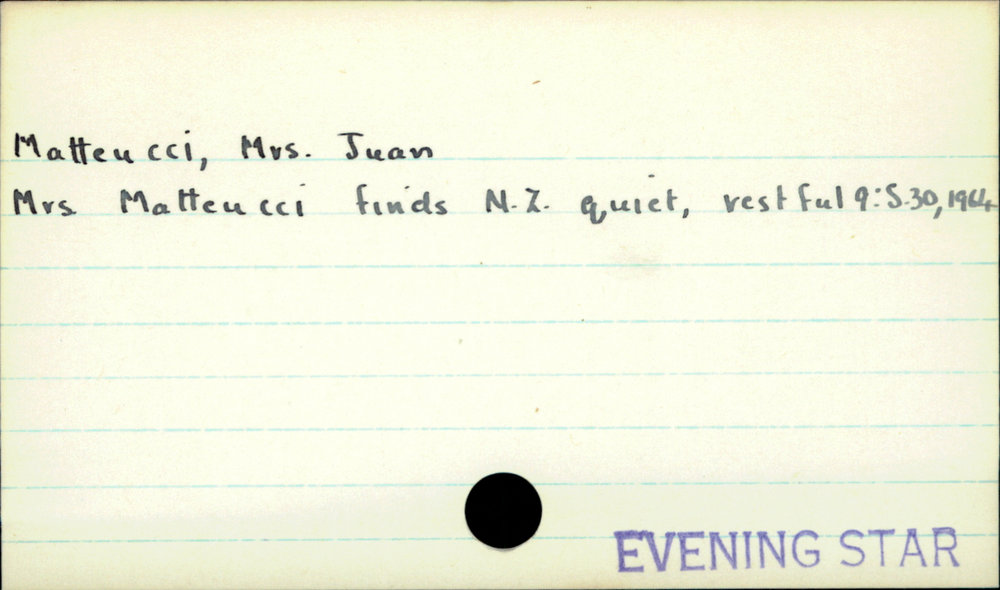 Matteucci, Mrs. Juan
Mrs Matteucci finds N.Z. quiet, restful 9:S.30, 1964
EVENING STAR